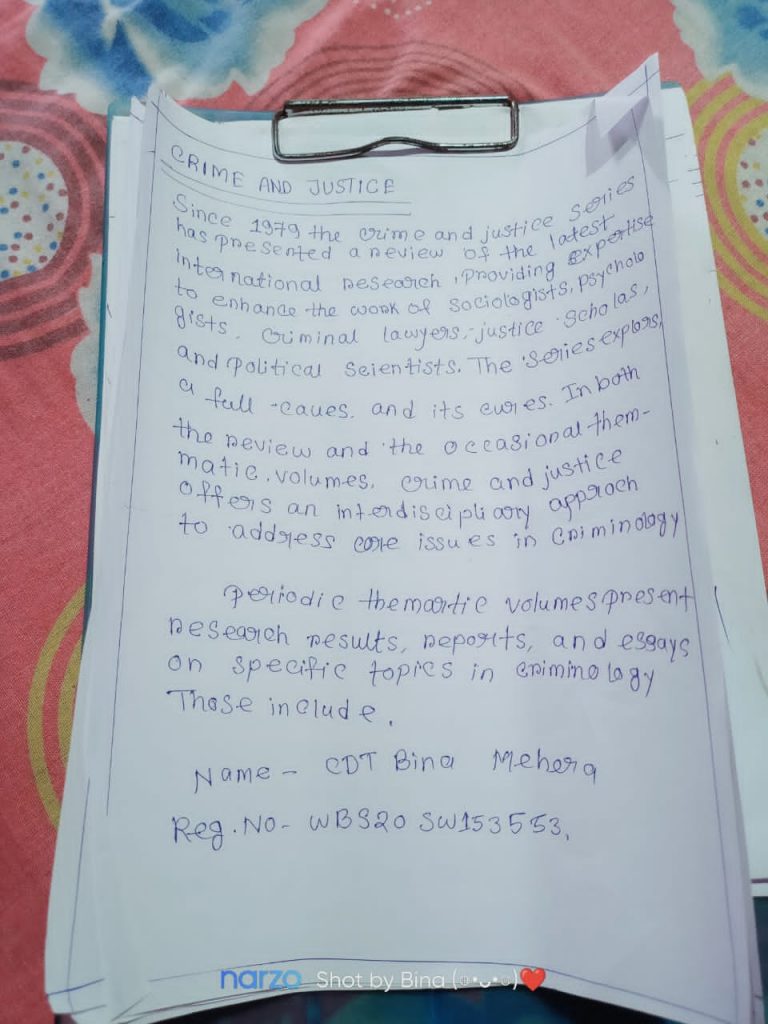 CRIME AND JUSTICE
Since 1979 the crime and justice series
has presented a review of the latest
international research, providing expertise
to enhance the work of sociologists, psycholo
gists, criminal lawyers, justice scholas,
and political scientists. The series explors,
a full -caues. and its cures. In both
the review and the occasional them-
matic volumes. crime and justice
offers an interdisciplinary approch
to address core issues in criminology
periodic themartic volumes present
research results, reports, and essays
on specific topics in criminology
Those include.
Name - CDT Bina Mehera
Reg. No- WBS20 SW153553,
narzo Shot by Bina (๑•ᴗ•๑)❤️